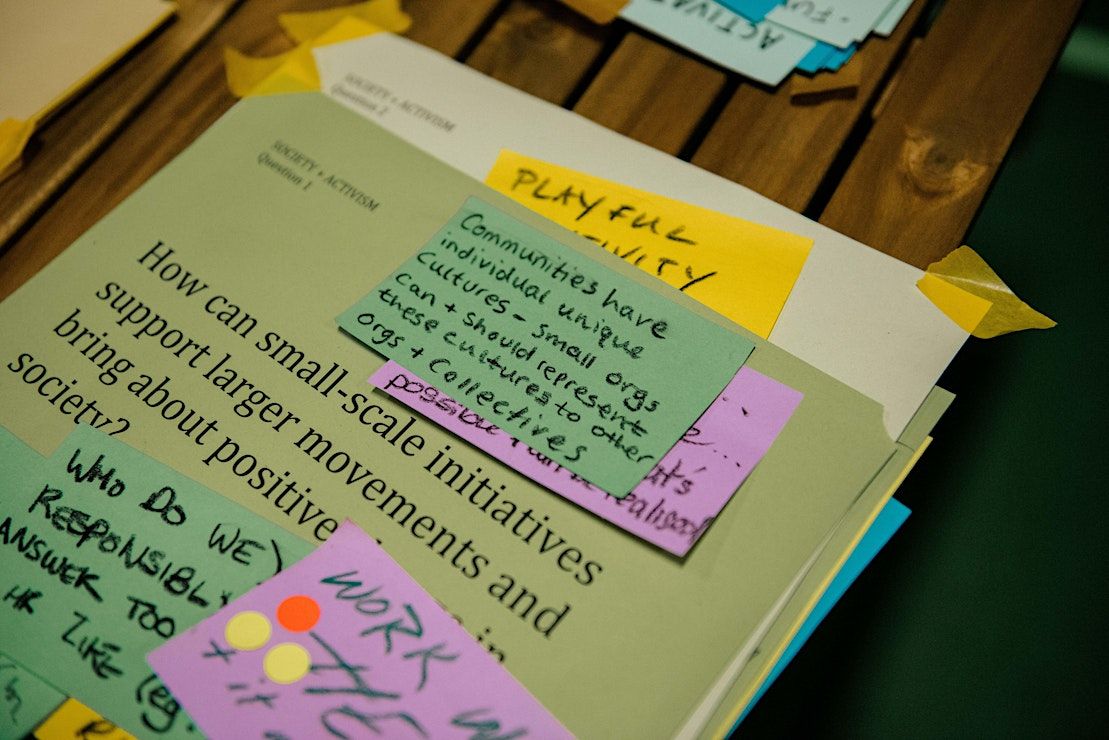 ACTIVAT
FU
SOCIETY + ACTIVISM
Question 2
SOCIETY + ACTIVISM
Question 1
PLAYFUL
Communities have
individual unique
cultures - small orgs
can + should represent
these cultures to other
orgs + Collectives
possible
realised
How can small-scale initiatives
support larger movements and
bring about positive
society?
in
WHO DO WE
RESPONSIBL
ANSWER TOO
HR LIKE (eg.
WORK
THE
it